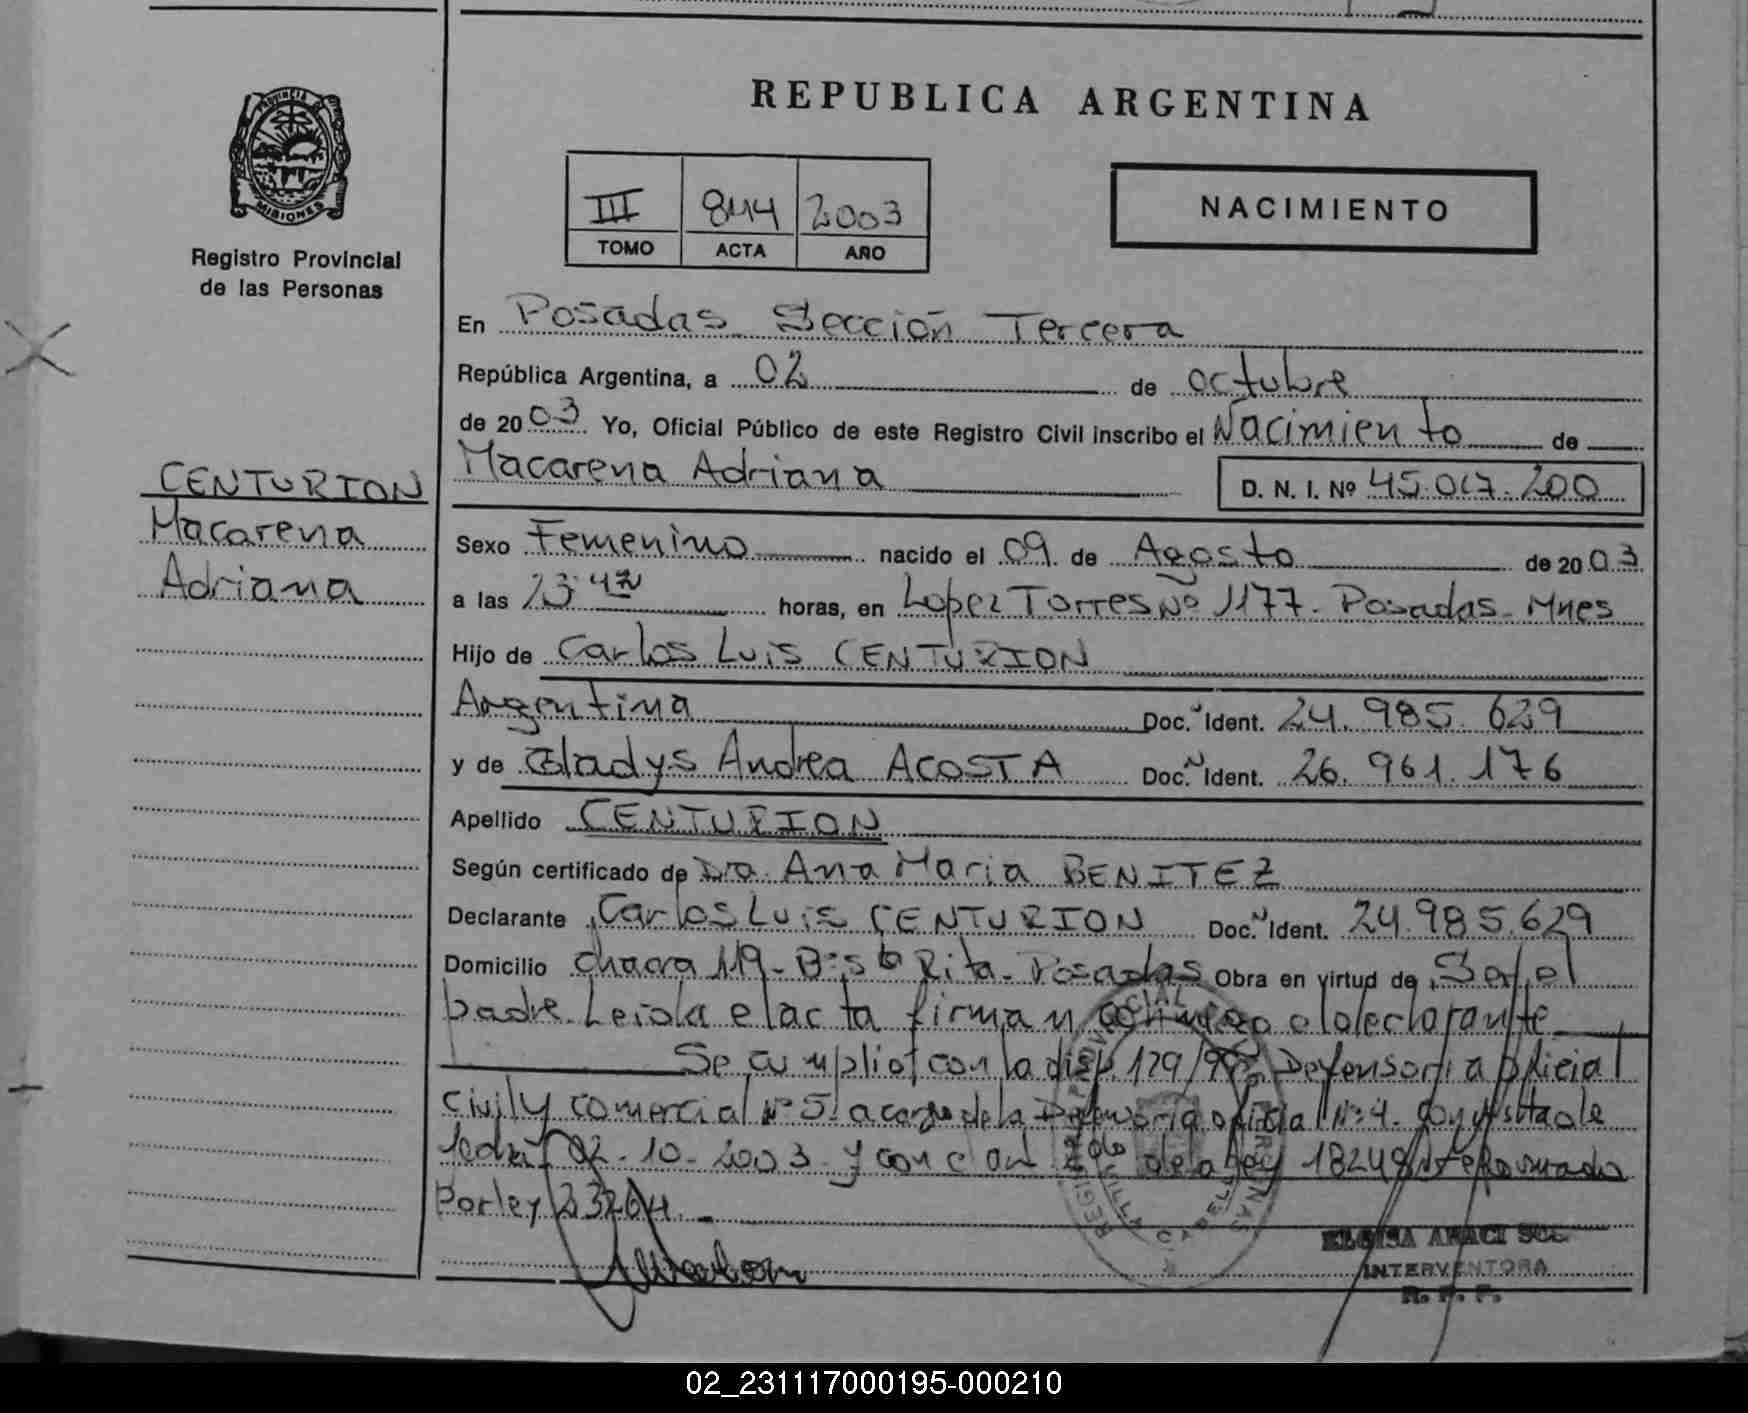 PROVINCIA
MISIONES
Registro Provincial
de las Personas
CENTURION
Macarena
Adriana
REPUBLICA ARGENTINA
III 844 2003
TOMO ACTA AÑO
NACIMIENTO
En Posadas Sección Tercera
República Argentina, a 02 de octubre
de 2003 Yo, Oficial Público de este Registro Civil inscribo el Nacimiento de
Macarena Adriana D. N. I. Nº 45.017.200
Sexo Femenino nacido el 09 de Agosto de 2003
a las 23:42 horas, en Lopez Torres Nº 1177. Posadas. Mnes
Hijo de Carlos Luis CENTURION
Argentina Doc. Ident. 24.985.629
y de Gladys Andrea ACOSTA Doc. Ident. 26.961.176
Apellido CENTURION
Según certificado de Dra. Ana Maria BENITEZ
Declarante Carlos Luis CENTURION Doc. Ident. 24.985.629
Domicilio chacra 119-Bº Sta Rita-Posadas Obra en virtud de Ser el
padre. Leida el acta firman conmigo el declarante
Se cumplio con la disp. 129/ Defensoria oficial
Civil y comercial Nº 5 a cargo de la Defensoria oficial Nº 4. con vista de
fecha 02-10-2003 y con el art de la ley 18248 reformado
Por ley 23264.
ELOISA ARACI SOL
INTERVENTORA
R. P. P.
02_231117000195-000210